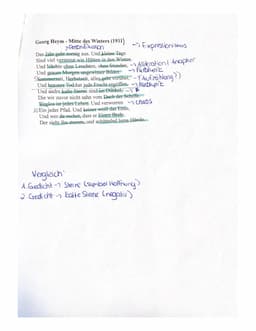 Georg Heym - Mitte des Winters (1911)
→ Personifikation → Expressionismus
Das Jahr geht zornig aus. Und kleine Tage
Sind viel verstreut wie Hütten in den Winter.
Und Nächte ohne Leuchten, ohne Stunden, → Alliteration / Anapher
Und grauer Morgen ungewisser Bilder. → Metapher
Sommerzeit, Herbstzeit, alles geht vorüber, → Aufzählung
Und brauner Tod hat jede Frucht ergriffen. → Metapher
Und andre kalte Sterne sind im Dunkel,
Die wir zuvor nicht sahn vom Dach der Schiffe.
Weglos ist jedes Leben. Und verworren → Chaos
Ein jeder Pfad. Und keiner weiß das Ende,
Und wer da suchet, daß er Einen fände,
Der sieht ihn stumm, und schüttelnd leere Hände.
Vergleich:
1. Gedicht → Sterne (symbol Hoffnung)
2. Gedicht → kalte Sterne (negativ)